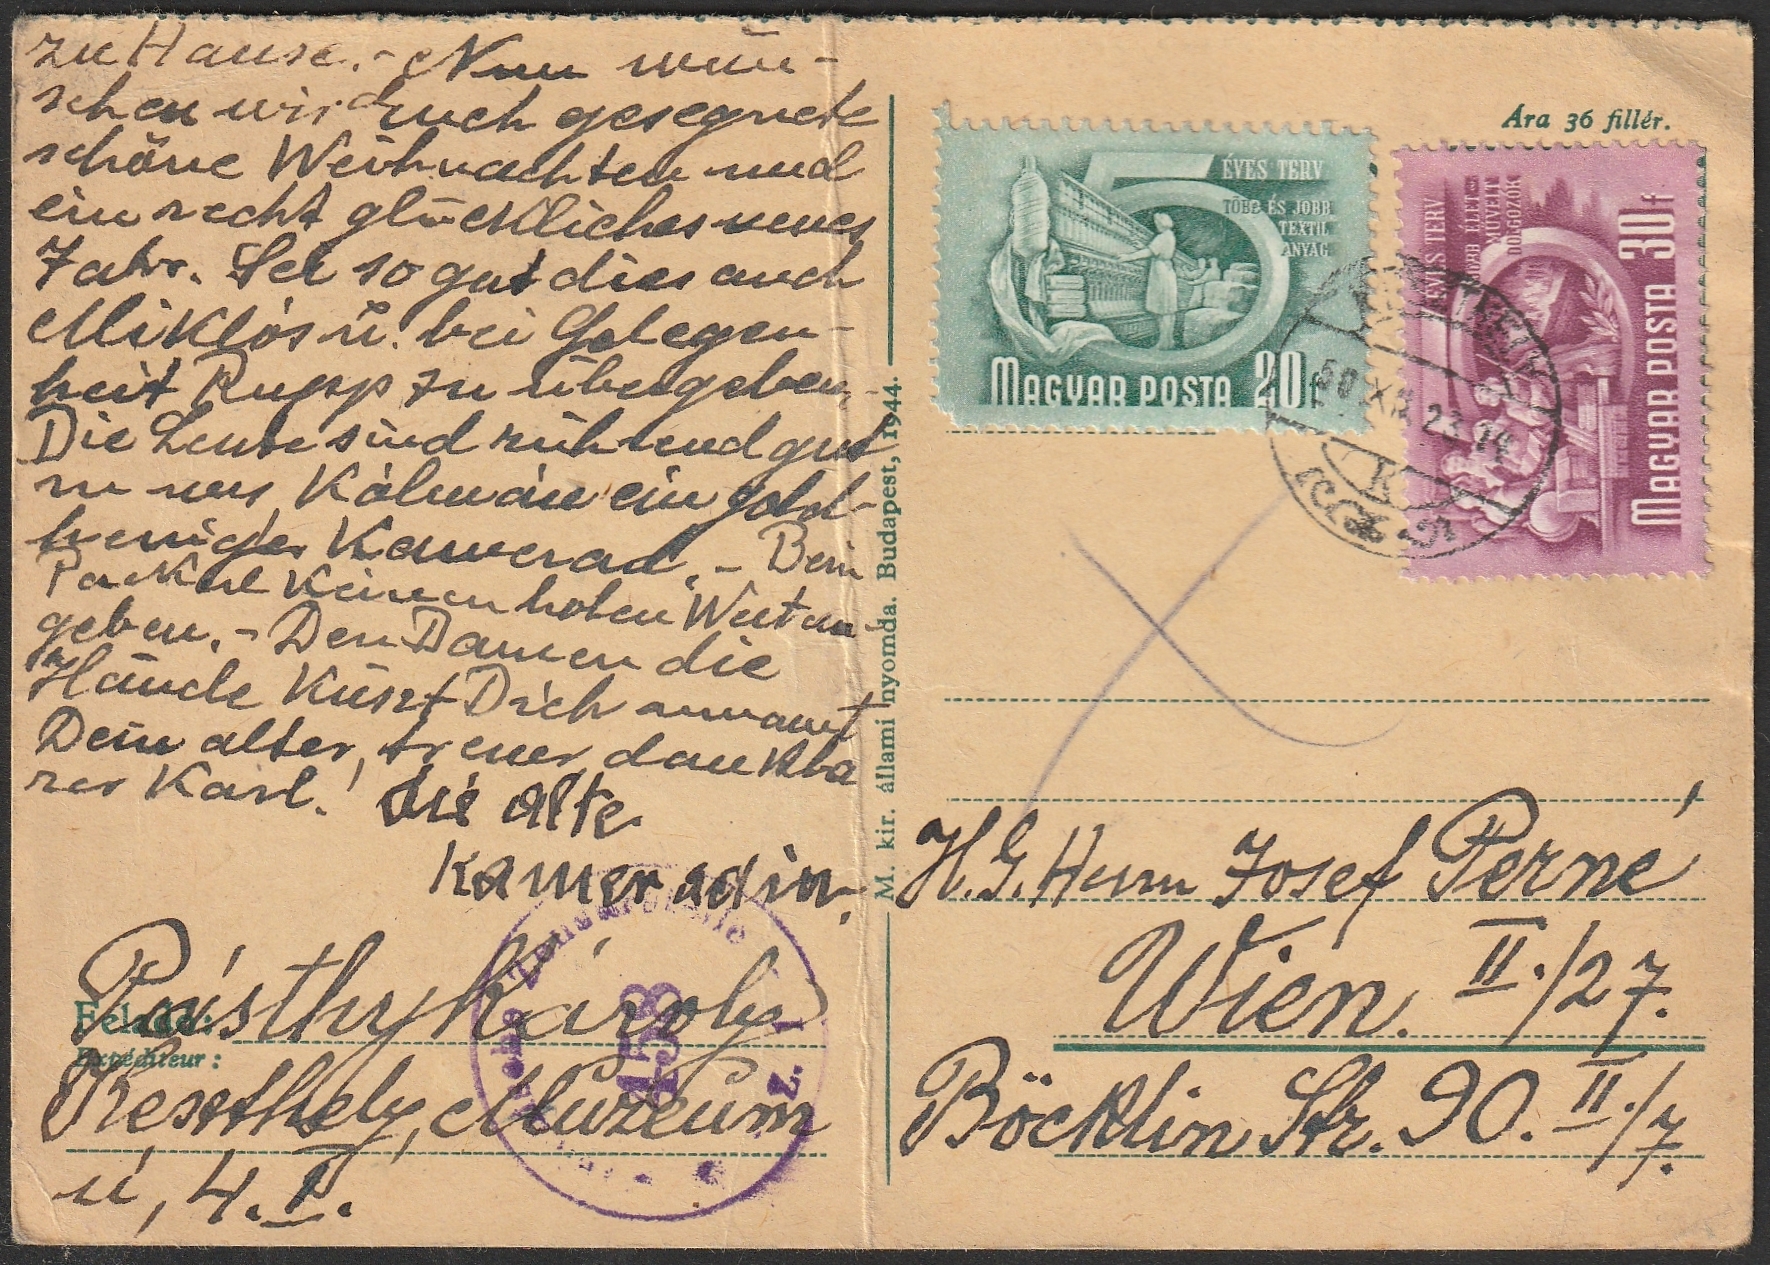 zu Hause. - Nun wün-
schen wir Euch gesegnete
schöne Weihnachten und
ein recht glückliches neues
Jahr. Sei so gut dies auch
Miklós u. bei Gelegen-
heit Rupp zu übergeben.
Die Leute sind rührend gut
zu uns Kálmán ein gold-
heniger Kamerad. - Beim
Packerl keinen hohen Wert an-
geben. - Den Damen die
Hände küszt Dich umarmt
Dein alter, treuer, dankba
rer Karl!
die alte
Kameradin.
Feladó:
Expéditeur:
Pásthy Károly
Keszthely, Múzeum
ú, 4. I.
453
z. I
M. kir. állami nyomda. Budapest, 1944.
Ára 36 fillér.
5 ÉVES TERV
TÖBB ÉS JOBB
TEXTIL
ANYAG
MAGYAR POSTA 20f
5 ÉVES TERV
JOBB ÉLET
MŰVELT
DOLGOZÓK
MAGYAR POSTA 30f
50 XII 23 14
K
H. G. Herrn Josef Perné
Wien. II./27.
Böcklin Str. 90. II./7.